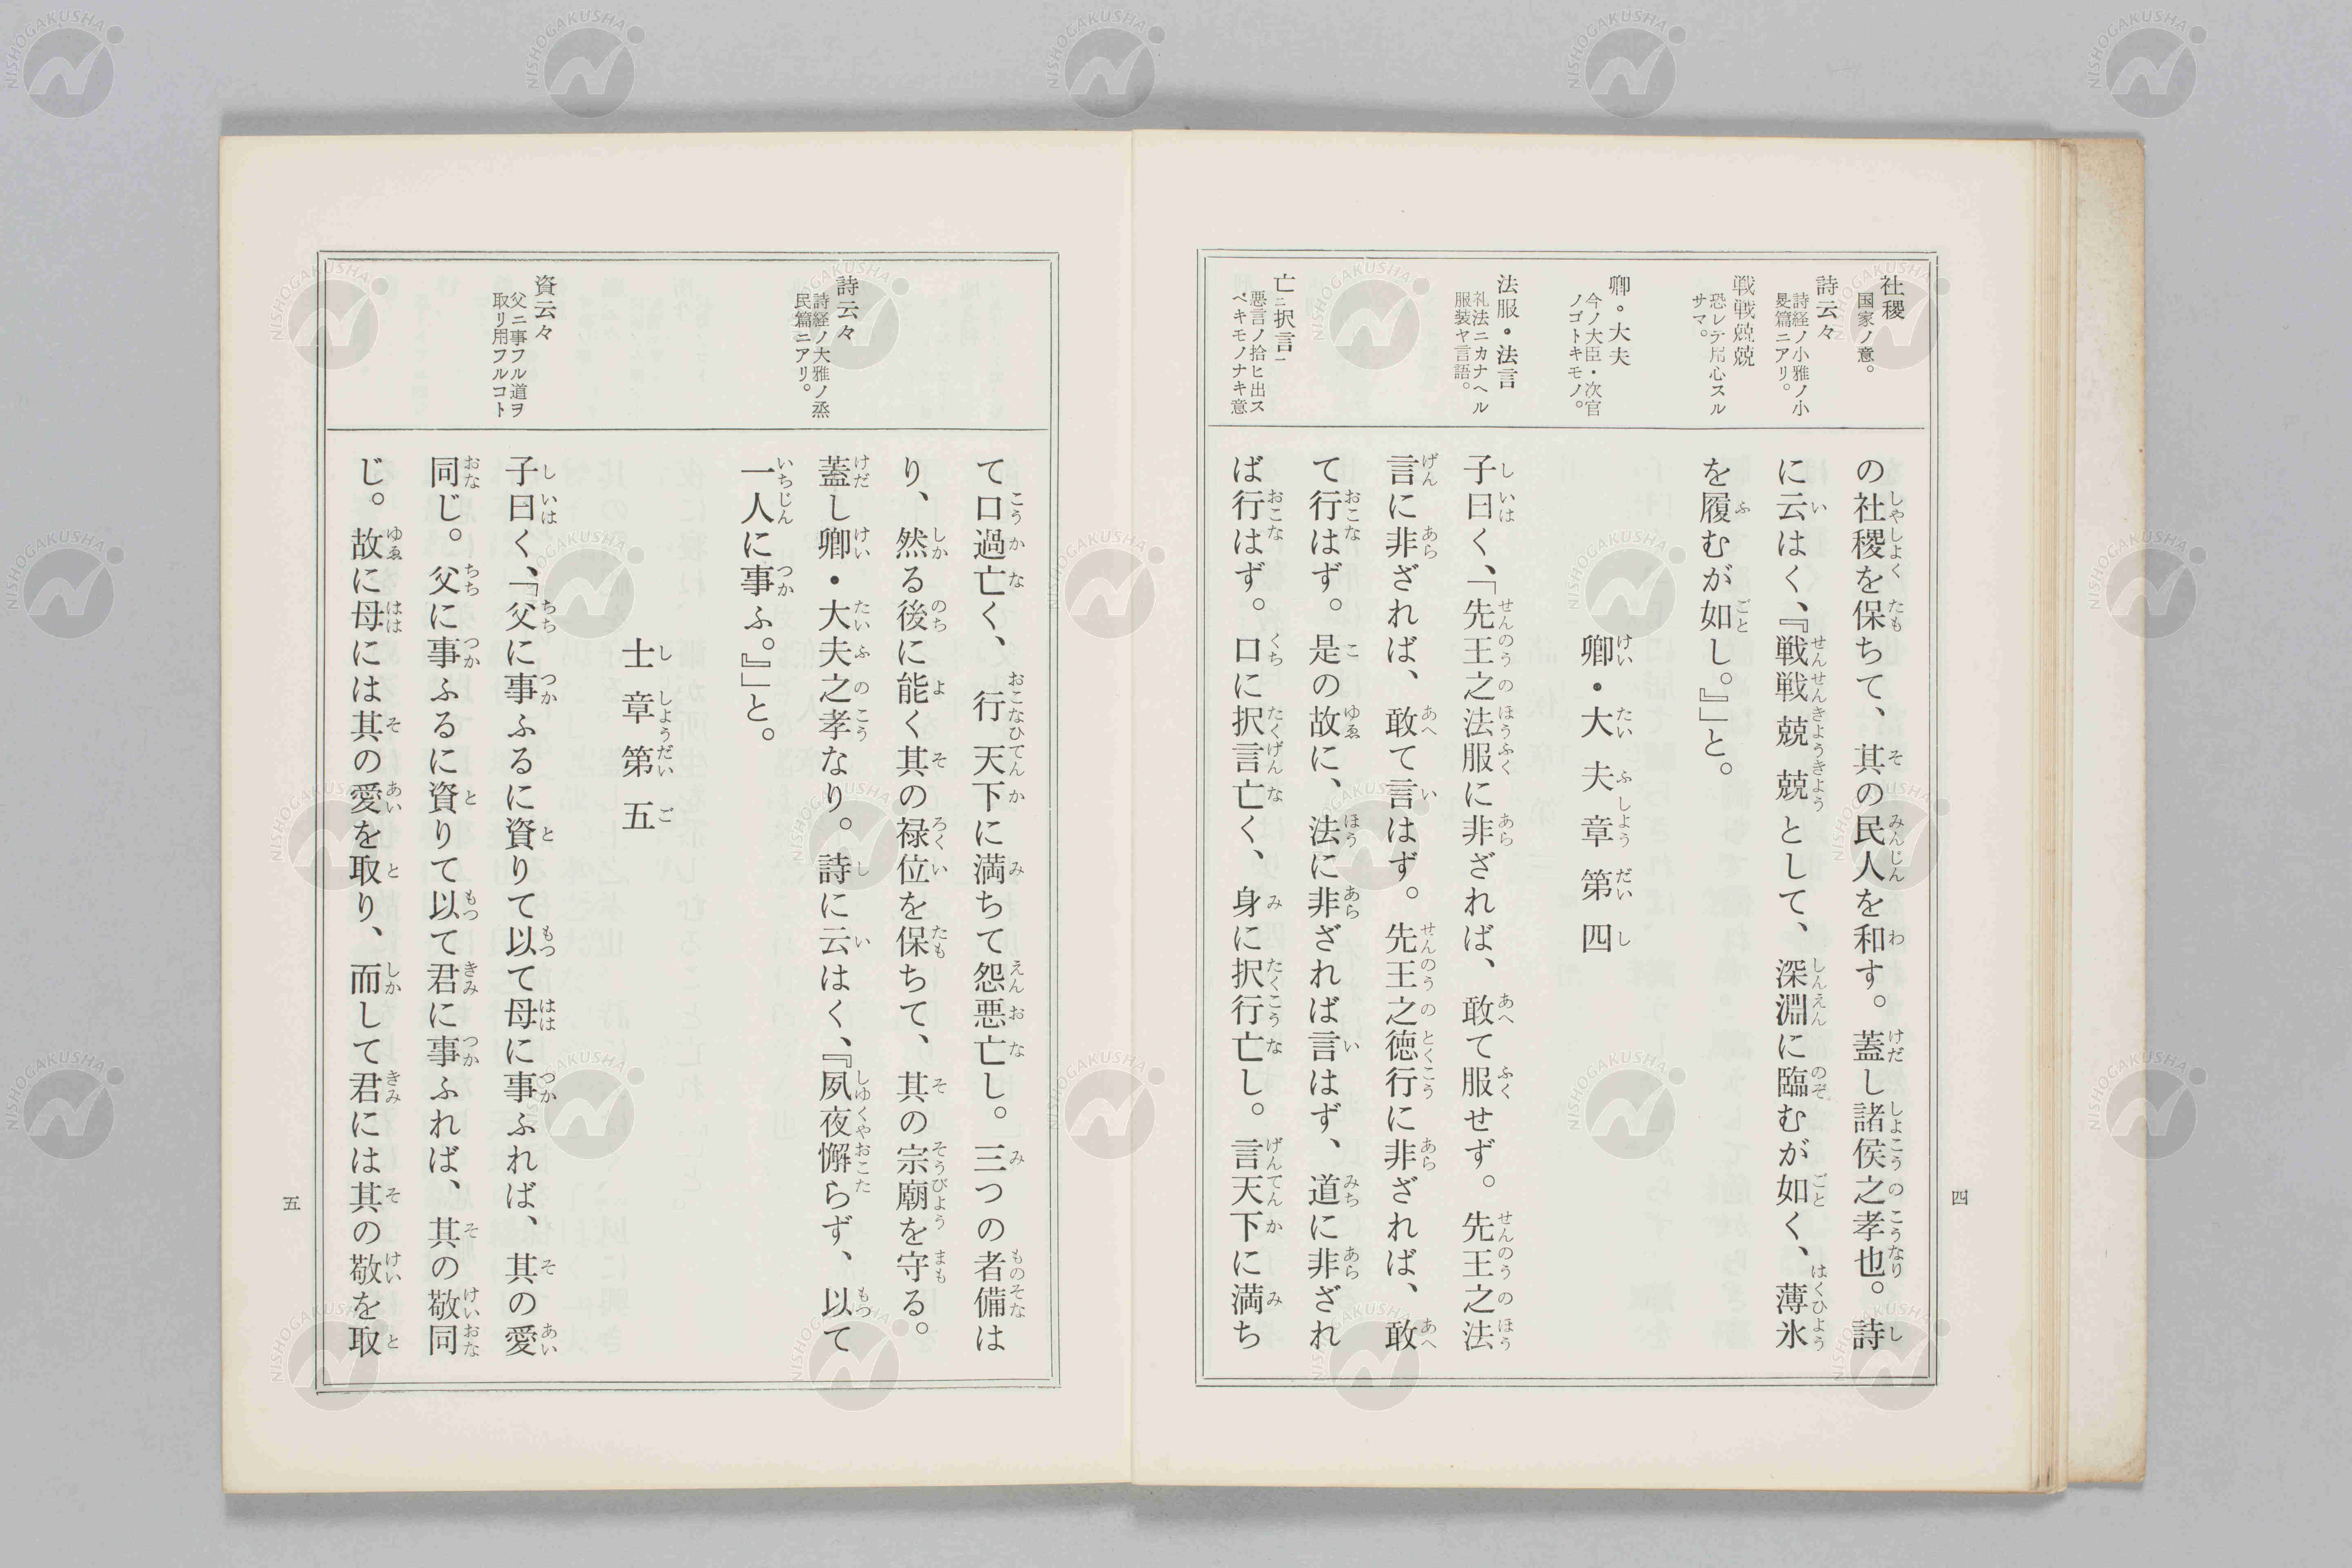 社稷
国家ノ意。
詩云々
詩経ノ小雅ノ小
旻篇ニアリ。
戦戦兢兢
恐レテ用心スル
サマ。
卿・大夫
今ノ大臣・次官
ノゴトキモノ。
法服・法言
礼法ニカナヘル
服装ヤ言語。
亡ニ択言一
悪言ノ拾ヒ出ス
ベキモノナキ意
の社稷を保ちて、其の民人を和す。蓋し諸侯之孝也。詩
に云はく、『戦戦兢兢として、深淵に臨むが如く、薄氷
を履むが如し。』」と。
卿・大夫章第四
子曰く、「先王之法服に非ざれば、敢て服せず。先王之法
言に非ざれば、敢て言はず。先王之徳行に非ざれば、敢
て行はず。是の故に、法に非ざれば言はず、道に非ざれ
ば行はず。口に択言亡く、身に択行亡し。言天下に満ち
四
詩云々
詩経ノ大雅ノ烝
民篇ニアリ。
資云々
父ニ事フル道ヲ
取リ用フルコト
て口過亡く、行天下に満ちて怨悪亡し。三つの者備は
り、然る後に能く其の禄位を保ちて、其の宗廟を守る。
蓋し卿・大夫之孝なり。詩に云はく、『夙夜懈らず、以て
一人に事ふ。』」と。
士章第五
子曰く、「父に事ふるに資りて以て母に事ふれば、其の愛
同じ。父に事ふるに資りて以て君に事ふれば、其の敬同
じ。故に母には其の愛を取り、而して君には其の敬を取
五